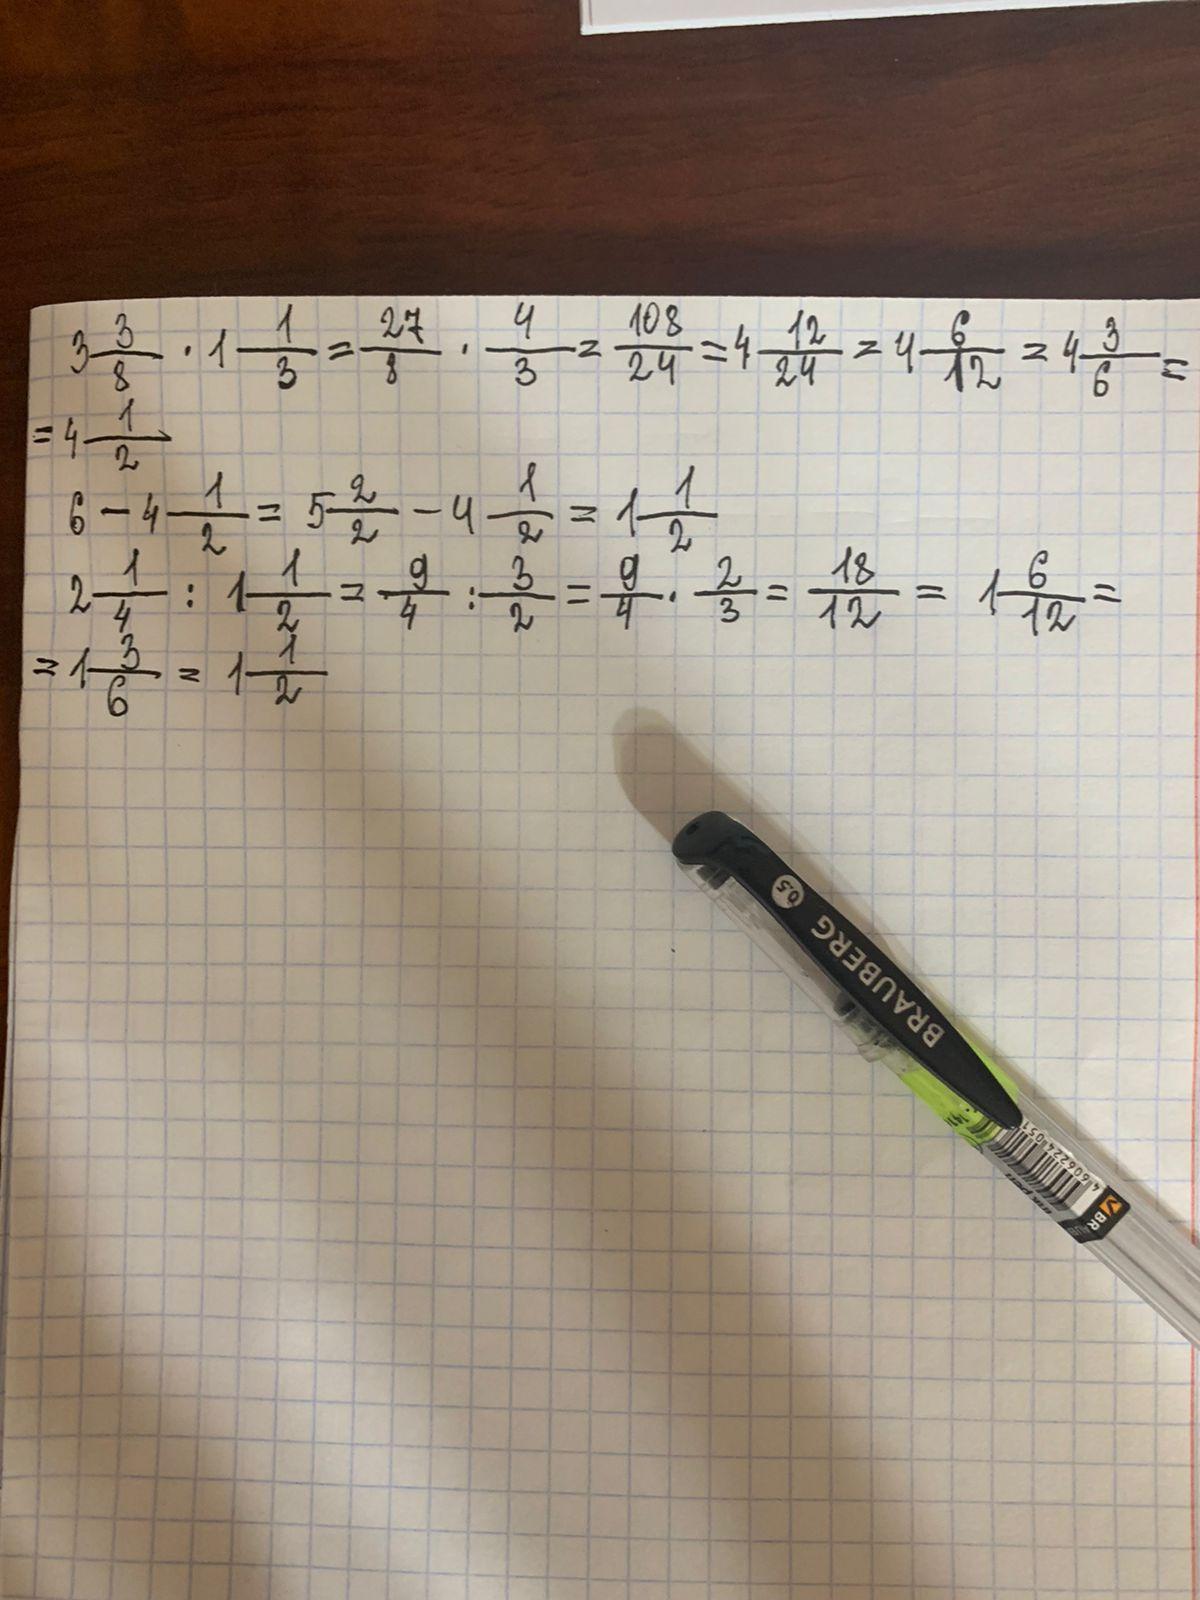 3 3/8 · 1 1/3 = 27/8 · 4/3 = 108/24 = 4 12/24 = 4 6/12 = 4 3/6 =
= 4 1/2
6 - 4 1/2 = 5 2/2 - 4 1/2 = 1 1/2
2 1/4 : 1 1/2 = 9/4 : 3/2 = 9/4 · 2/3 = 18/12 = 1 6/12 =
= 1 3/6 = 1 1/2
0.5
BRAUBERG
4 606224 051